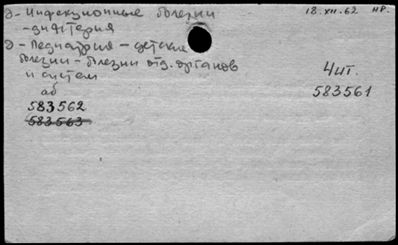 д - Инфекционные болезни
18.XII.62 НР.
- дифтерия
д - Педиатрия - детские
болезни - болезни отд. органов
и систем
Чит.
аб
583561
583562
583563